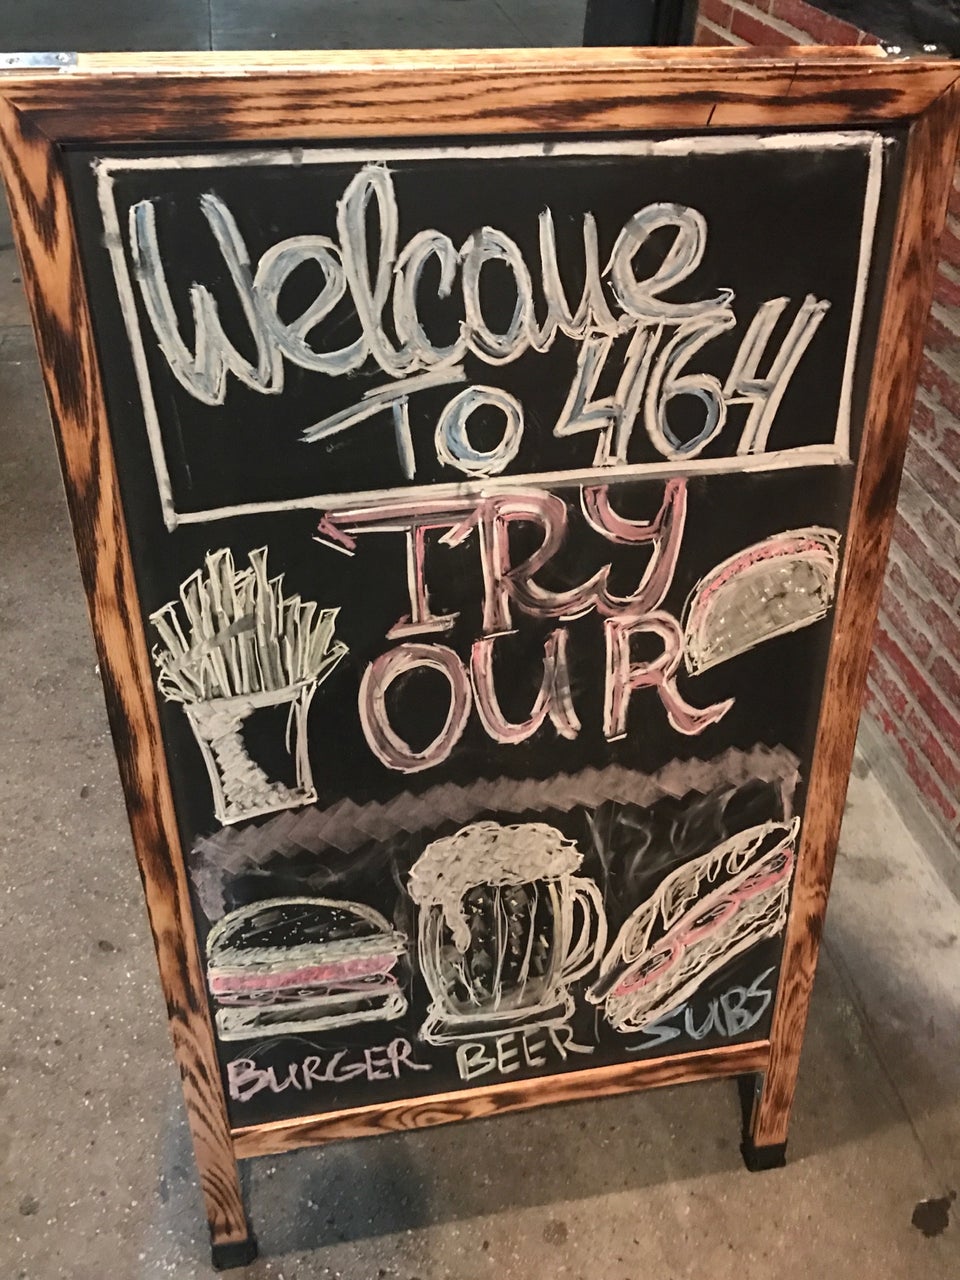 Welcome
To 464
TRY
OUR
BURGER BEER SUBS